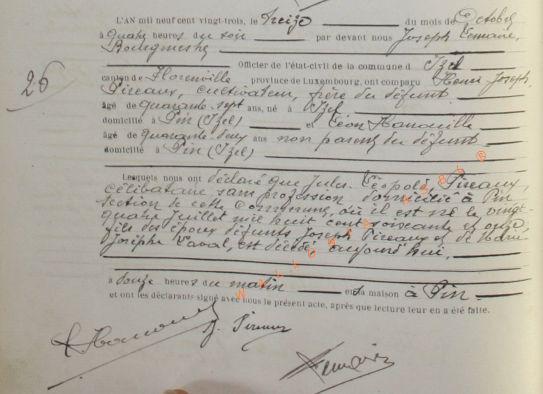 L'AN mil neuf cent vingt-trois, le treize du mois de Octobre
à quatre heures du soir par devant nous Joseph Lemaire,
Bourgmestre
Officier de l'état-civil de la commune d' Izel
26
canton de Florenville province de Luxembourg, ont comparu Henri Joseph
Pireaux, cultivateur, frère du défunt
âgé de quarante sept ans, né à Izel
domicilié à Pin (Izel) et Léon Hanouille
âgé de quarante deux ans non parent du défunt
domicilié à Pin (Izel)
Lesquels nous ont déclaré que Jules Léopold Pireaux,
célibataire sans profession domicilié à Pin
section de cette Commune, où il est né le vingt-
quatre Juillet mil huit cent soixante et onze,
fils des époux défunts Joseph Pireaux et de Marie
Josèphe Laval, est décédé aujourd'hui
à douze heures du matin en sa maison à Pin
et ont les déclarants signé avec nous le présent acte, après que lecture leur en a été faite.
J. Pireaux
Lemaire